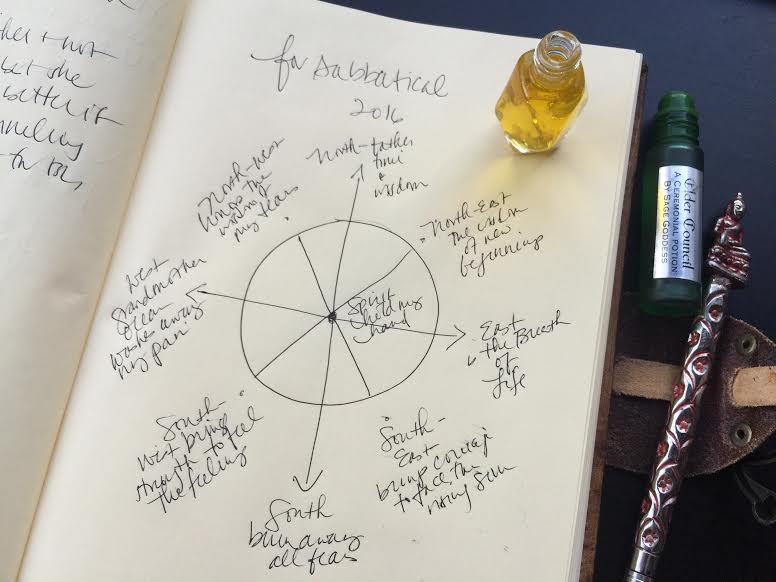 better if
for Sabbatical
2016
North-father
time
&
wisdom
North-west
the
my
North-East
the wisdom
of new
beginnings
West
Grandmother
Ocean
washes away
my pain
Spirit
hold my
hand
East
the Breath
of
Life
South-
west bring
strength to feel
the feeling
South-
East
bring courage
to face the
rising sun
South
burn away
all fears
Elder Council
A Ceremonial Potion
By Sage Goddess